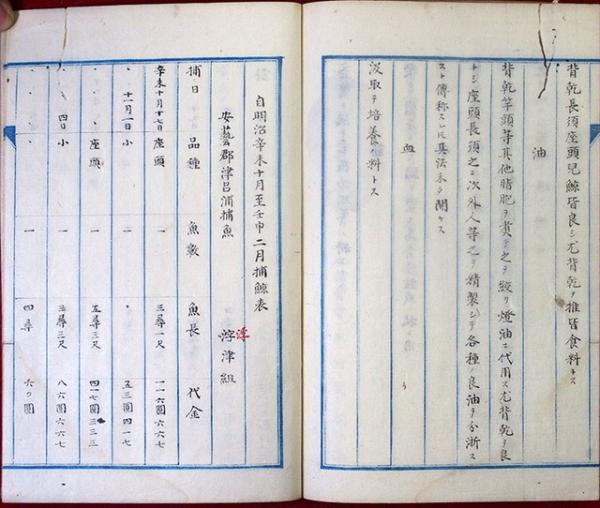 背乾長須座頭児鯨皆良シ尤背乾ヲ推皆食料トス
油
背乾竿頭等其他脂肥ヲ煮テ之ヲ絞リ燈油ニ代用ス尤背乾ヲ良
トシ座頭長須之ニ次外人等之ヲ精製シテ各種ノ良油ヲ分析ス
スト傳称スレ𪜈其法未タ聞ヤス
血
汲取ヲ培養料トス
自明治辛未十月至壬申二月捕鯨表
安藝郡津呂浦捕魚
浮
浮津組
捕日 品種 魚数 魚長 代金
辛未十月十七日 座頭 一 三尋一尺 一一六圓六六七
十一月一日 小 一 、 五三圓四一七
、 、 座頭 一 五尋三尺 四一七圓三三三
、 四日 小 一 三尋三尺 八六圓六六七
、 、 、 一 四尋 六〇圓